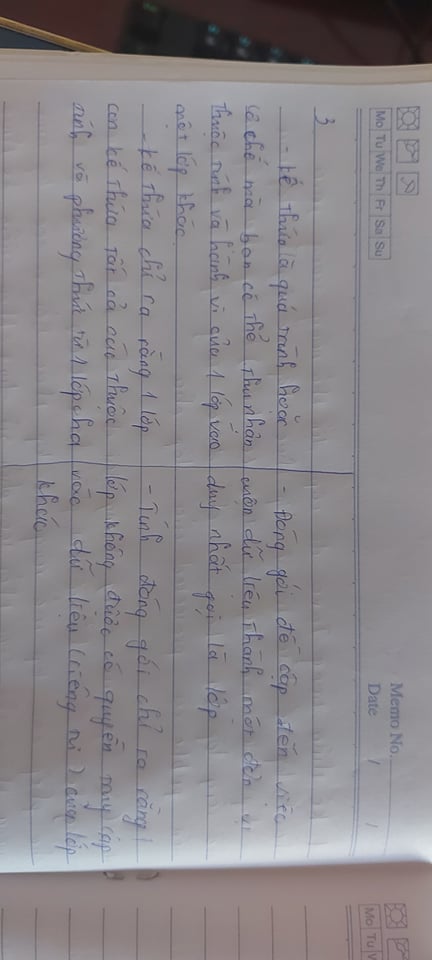 Mo Tu We Th Fr Sa Su
Memo No.
Date / /
3
- kế thừa là quá trình hoặc
cơ chế mà bạn có thể thu nhận
thuộc tính và hành vi của 1 lớp vào
một lớp khác.
- kế thừa chỉ ra rằng 1 lớp
con kế thừa tất cả các thuộc
tính và phương thức từ 1 lớp cha
- Đóng gói đề cập đến việc
cuộn dữ liệu thành một đơn vị
duy nhất gọi là lớp
- Tính đóng gói chỉ ra rằng 1
lớp không được có quyền truy cập
vào dữ liệu (riêng tư) của lớp
khác
Mo Tu